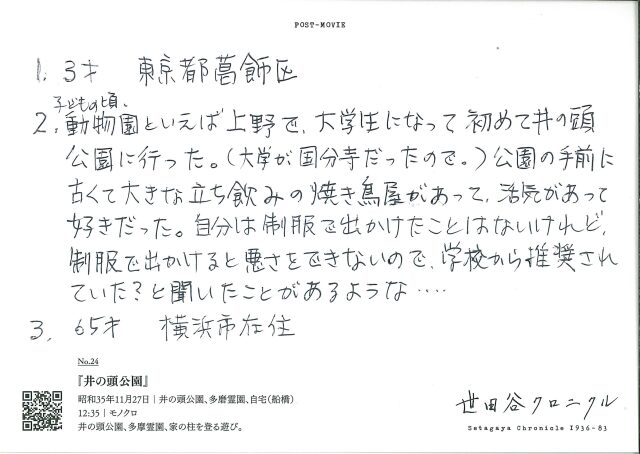 POST-MOVIE
1. 3才 東京都葛飾区
子どもの頃、
2. 動物園といえば上野で、大学生になって初めて井の頭
公園に行った。(大学が国分寺だったので。)公園の手前に
古くて大きな立ち飲みの焼き鳥屋があって、活気があって
好きだった。自分は制服で出かけたことはないけれど、
制服で出かけると悪さをできないので、学校から推奨され
ていた?と聞いたことがあるような‥‥
3. 65才 横浜市在住
No.24
『井の頭公園』
昭和35年11月27日|井の頭公園、多磨霊園、自宅(船橋)
12:35|モノクロ
井の頭公園、多摩霊園、家の柱を登る遊び。
世田谷クロニクル
Setagaya Chronicle 1936-83